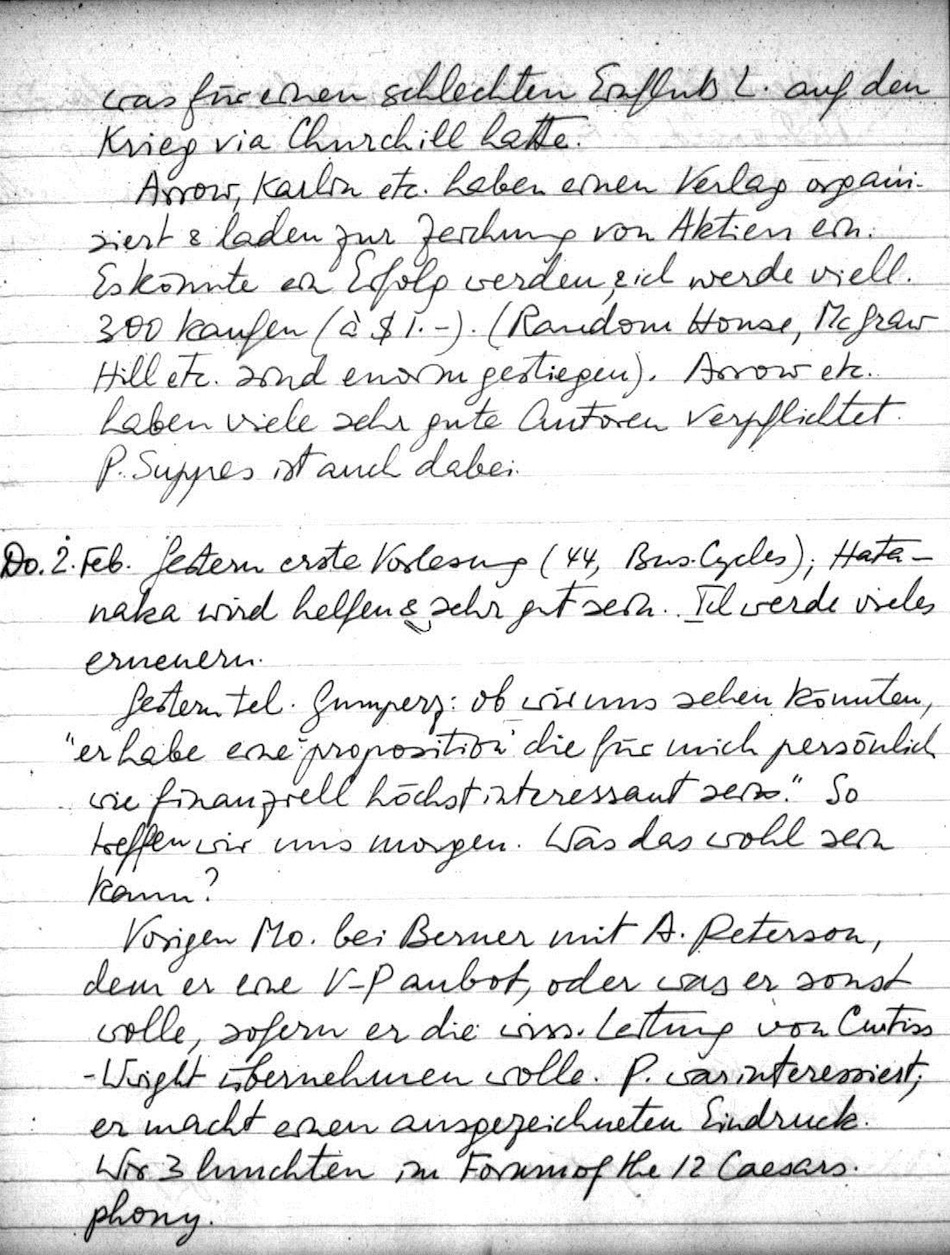 was für einen schlechten Einfluß L. auf den
Krieg via Churchill hatte.
Arrow, Karlin etc. haben einen Verlag organi-
siert & laden zur Zeichnung von Aktien ein.
Es könnte ein Erfolg werden, & ich werde viell.
300 kaufen (à $ 1.-). (Random House, McGraw
Hill etc. sind enorm gestiegen). Arrow etc.
haben viele sehr gute Autoren verpflichtet.
P. Suppes ist auch dabei.
Do. 2. Feb. Gestern erste Vorlesung (44, Bus. Cycles); Hata-
naka wird helfen & sehr gut sein. Ich werde vieles
erneuern.
Gestern tel. Gumperz: ob wir uns sehen könnten,
"er habe eine 'proposition' die für mich persönlich
wie finanziell höchst interessant sein." So
treffen wir uns morgen. Was das wohl sein
kann?
Vorigen Mo. bei Berner mit A. Peterson,
dem er eine V-P anbot, oder was er sonst
wolle, sofern er die wiss. Leitung von Curtiss
-Wright übernehmen wolle. P. war interessiert;
er macht einen ausgezeichneten Eindruck.
Wir 3 lunchten im Forum of the 12 Caesars.
phony.